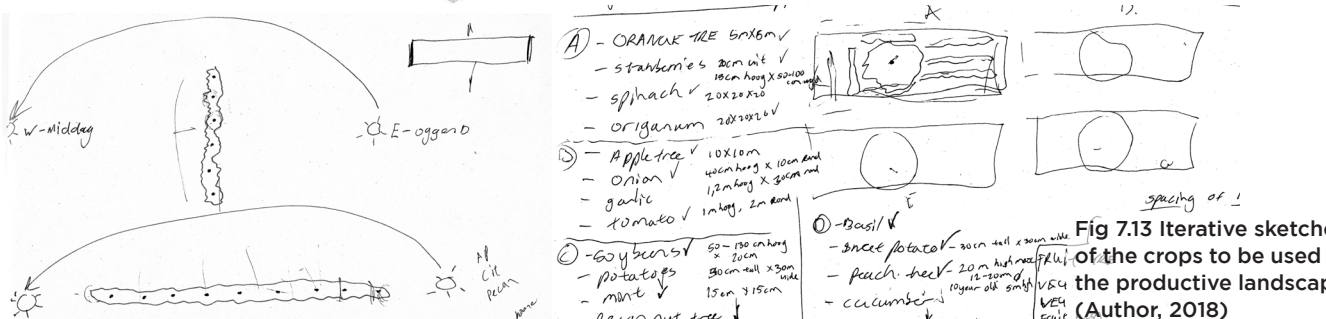 W-middag
E-oggend
AP
Cit
Pecan
A - ORANGE TREE 5mx6m ✓
- strawberries 20cm uit ✓
15cm hoog x 50-100
- spinach ✓ 20x20x20
- origanum 20x20x20 ✓
B - Apple tree ✓ 10x10m
- onion ✓ 40cm hoog x 10cm rond
- garlic 1,2m hoog x 30cm rond
- tomato ✓ 1m hoog, 2m rond
C - Soybeans ✓ 50-130 cm hoog
x 20cm
- potatoes 30cm tall x 30m
wide
- mint ✓ 15cm x 15cm
A
B.
E
D - Basil ✓
- sweet potato ✓ - 30cm tall x 30cm wide
- peach tree ✓ - 20m high
12-20m
10 year old 5m
- cucumber
spacing of
FRUIT
VEG
VEG
Fruit
Fig 7.13 Iterative sketche
of the crops to be used
the productive landscap
(Author, 2018)